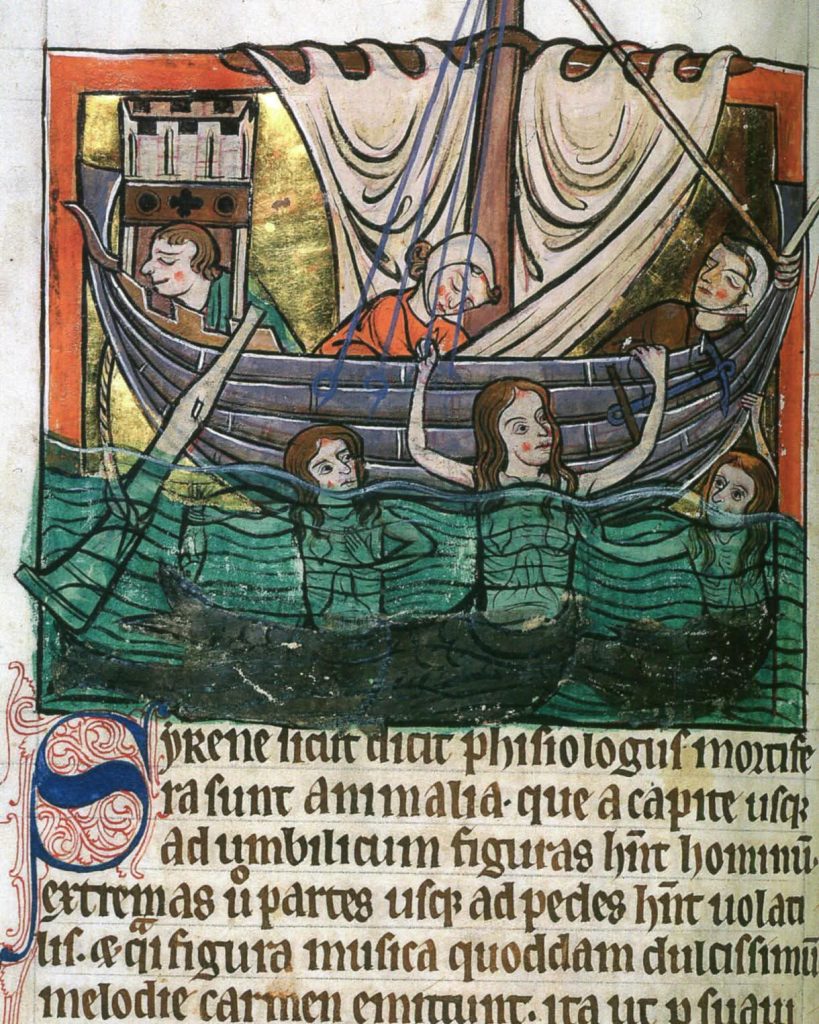 Syrene sicut dicit phisiologus mortife
ra sunt animalia· que a capite usq̨
ad umbilicum figuras hn̄t hominū·
extremas ů partes usq̨ ad pedes hn̄t uolati
lis. & qͣi figura musica quoddam dulcissimū
melodie carmen emittunt· ita ut p suaui